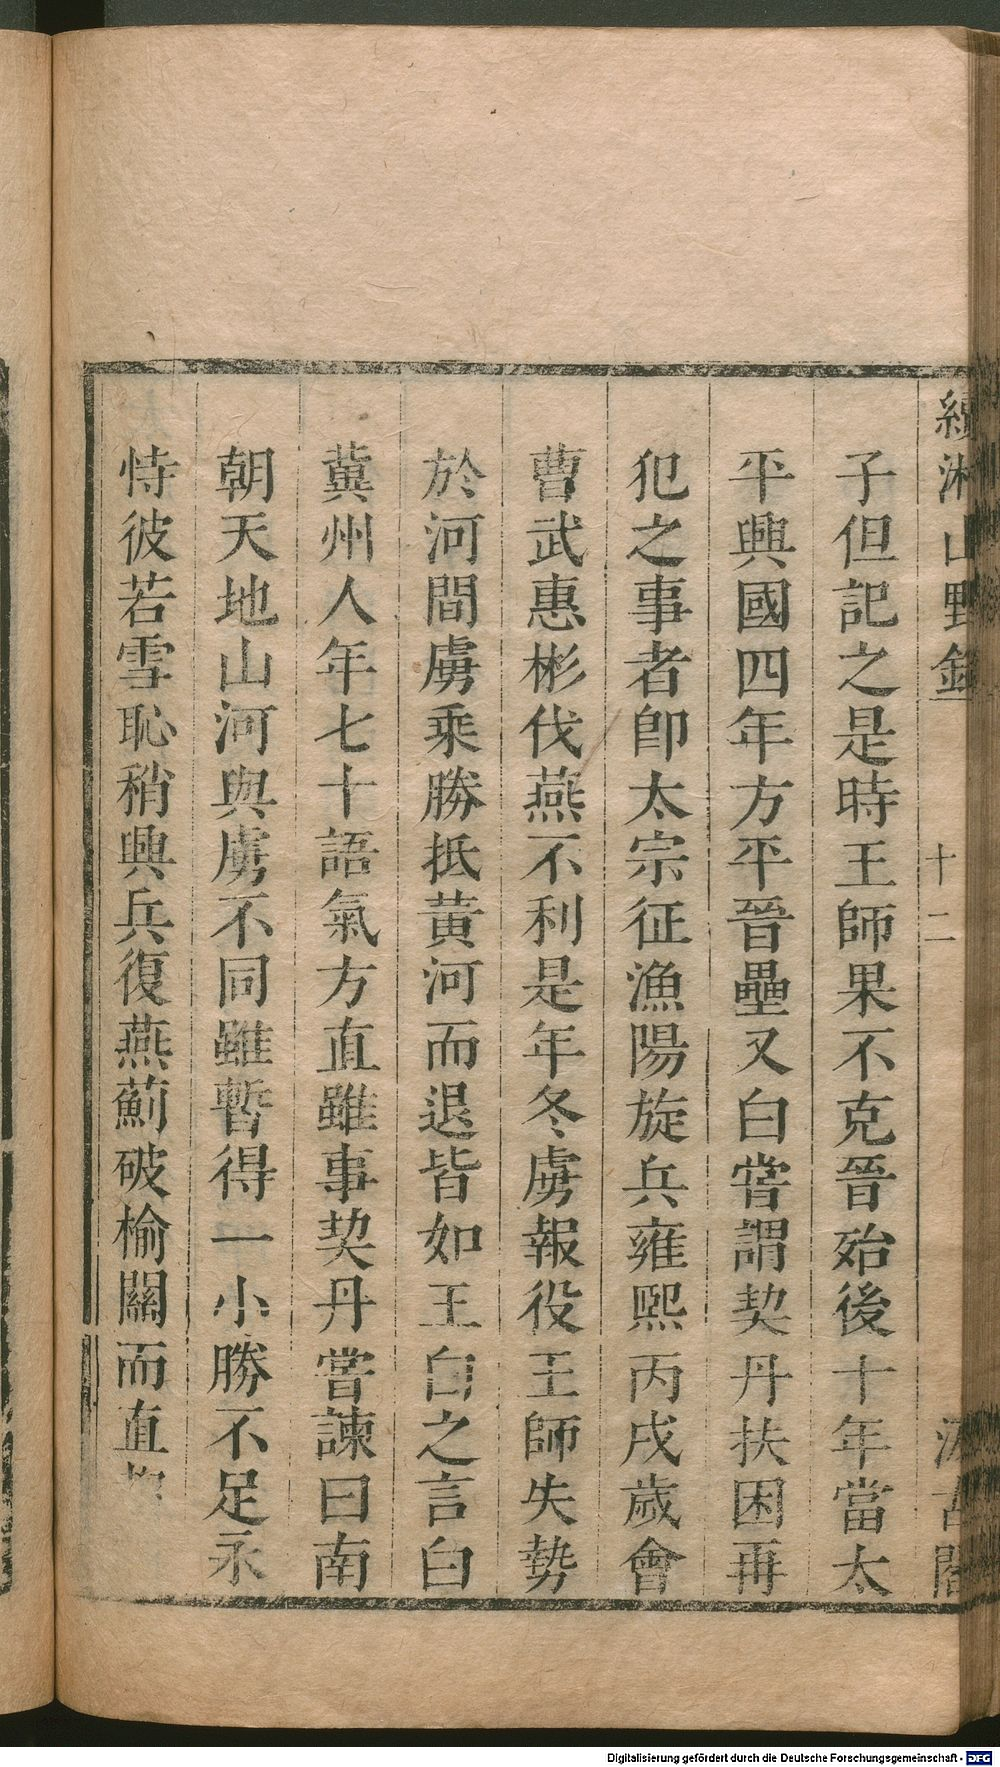 續湘山野錄 十二 汲古閣
子但記之是時王師果不克晉殆後十年當太
平興國四年方平晉壘又白嘗謂契丹扶困再
犯之事者卽太宗征漁陽旋兵雍熙丙戌歲會
曹武惠彬伐燕不利是年冬虜報役王師失勢
於河間虜乘勝抵黃河而退皆如王白之言白
冀州人年七十語氣方直雖事契丹嘗諫曰南
朝天地山河與虜不同雖暫得一小勝不足永
恃彼若雪恥稍興兵復燕薊破榆關而直
Digitalisierung gefördert durch die Deutsche Forschungsgemeinschaft - DFG